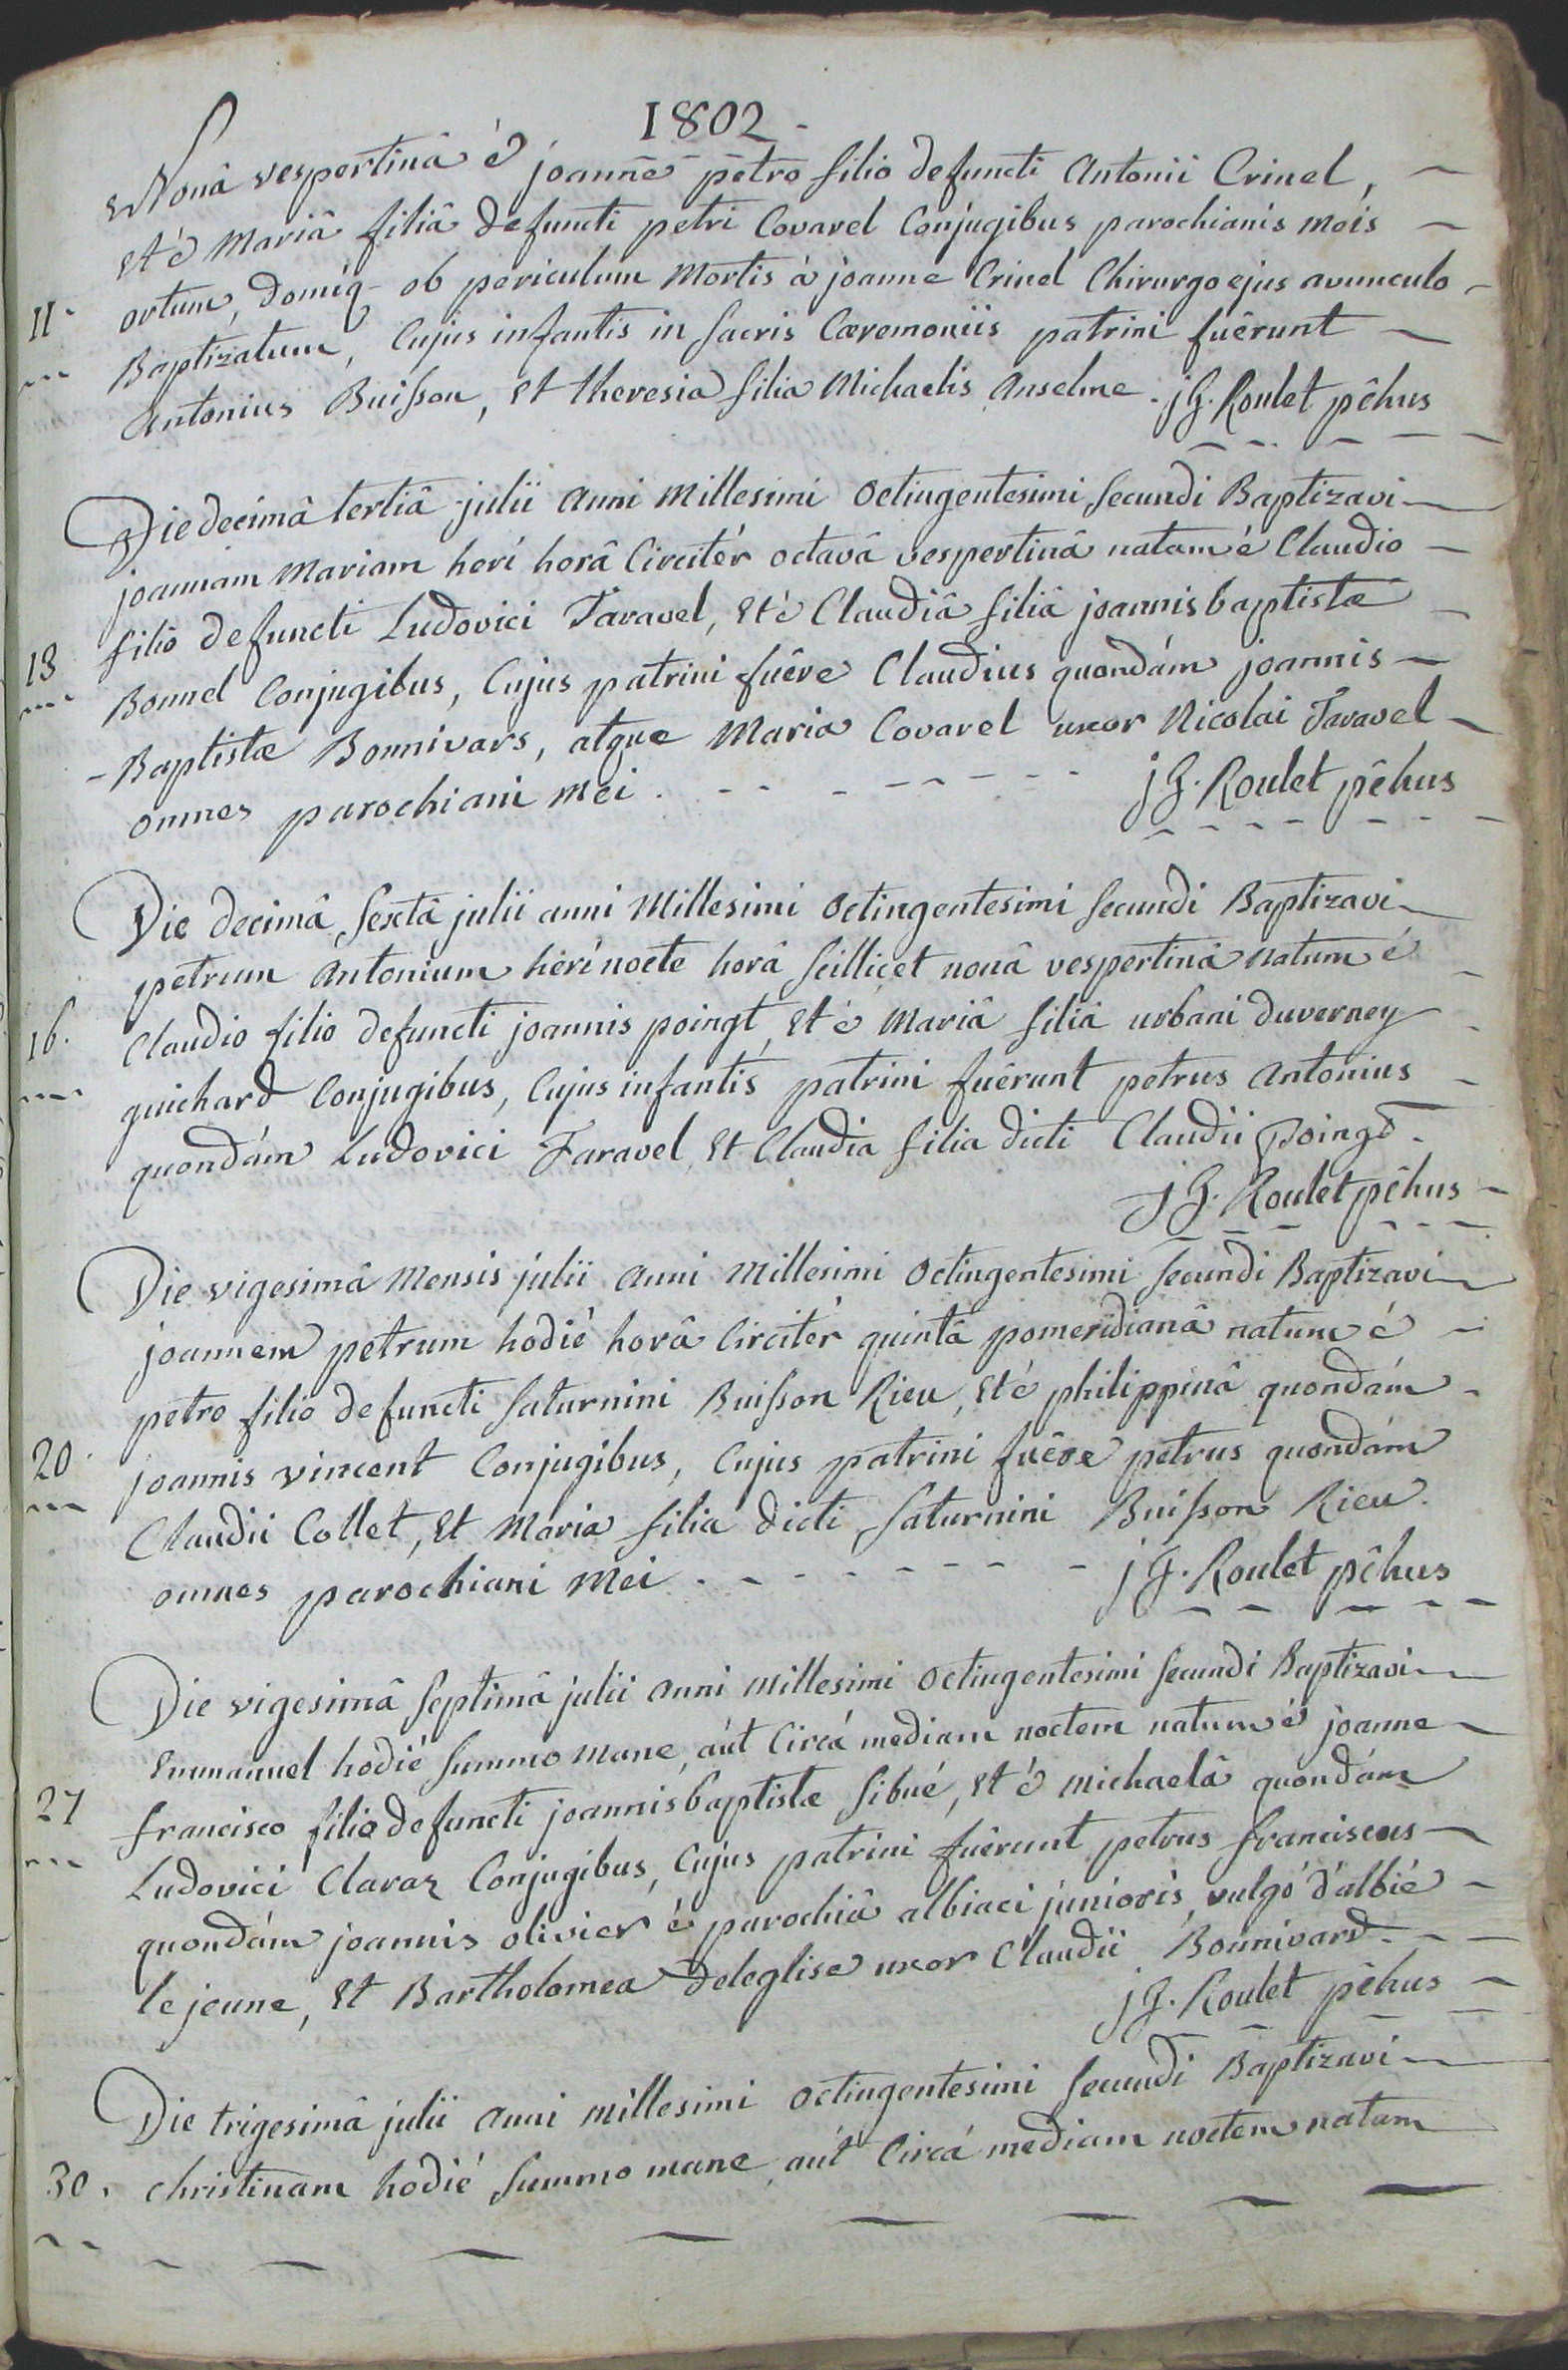 1802 -
Nonâ vespertinâ é joanne petro filio defuncti Antonii Crinel,
et é Mariâ filiâ defuncti petri Covarel Conjugibus parochianis meis
11 ortum, domiq ob periculum Mortis á joanne Crinel Chirurgo ejus avunculo
Baptizatum, Cujus infantis in sacris Cæremoniis patrini fuêrunt
Antonius Buisson, et theresia filia Michaelis Anselme. j G. Roulet pêhus
Die decimâ tertiâ julii anni Millesimi Octingentesimi secundi Baptizavi
joannam Mariam herí horâ Circitér octavâ vespertinâ natam é Claudio
filio defuncti Ludovici Taravel, et é Claudiâ filiâ joannis baptistæ
13 Bonnel Conjugibus, Cujus patrini fuêre Claudius quondám joannis
- Baptistæ Bonnivars, atque Maria Covarel uxor Nicolai Taravel
omnes parochiani mei. j G. Roulet pêhus
Die decimâ sextâ julii anni Millesimi Octingentesimi secundi Baptizavi
petrum Antonium heri nocte horâ scillicet nonâ vespertinâ natum é
16. Claudio filio defuncti joannis poingt, et é Mariâ filiâ urbani duverney
guichard Conjugibus, Cujus infantis patrini fuêrunt petrus Antonius
quondám Ludovici Taravel, et Claudia filia dicti Claudii poingt.
j G. Roulet pêhus
Die vigesimâ Mensis julii anni Millesimi Octingentesimi secundi Baptizavi
joannem petrum hodié horâ Circitér quintâ pomeridianâ natum é
petro filio defuncti saturnini Buisson Rieu, et é philippinâ quondám
20 joannis vincent Conjugibus, Cujus patrini fuêre petrus quondám
Claudii Collet, et Maria filia dicti saturnini Buisson Rieu.
omnes parochiani mei. j G. Roulet pêhus
Die vigesimâ septimâ julii anni Millesimi Octingentesimi secundi Baptizavi
Emmanuel hodié summo mane, aút Circá mediam noctem natum é joanne
27 francisco filio defuncti joannis baptistæ sibué, et é michaelâ quondám
Ludovici Claraz Conjugibus, Cujus patrini fuêrunt petrus franciscus
quondám joannis olivier é parochiâ albiaci junioris, vulgó d'albié
le jeune, et Bartholomea deleglise uxor Claudii Bonnivard
j G. Roulet pêhus
Die trigesimâ julii anni millesimi Octingentesimi secundi Baptizavi
30. christinam hodié summo mane, aút Circá mediam noctem natam